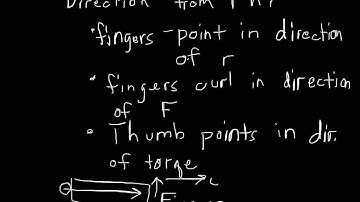 Direction from RHR
• fingers - point in direction
of r
• fingers curl in direction
of F
• Thumb points in dir.
of torqe
r